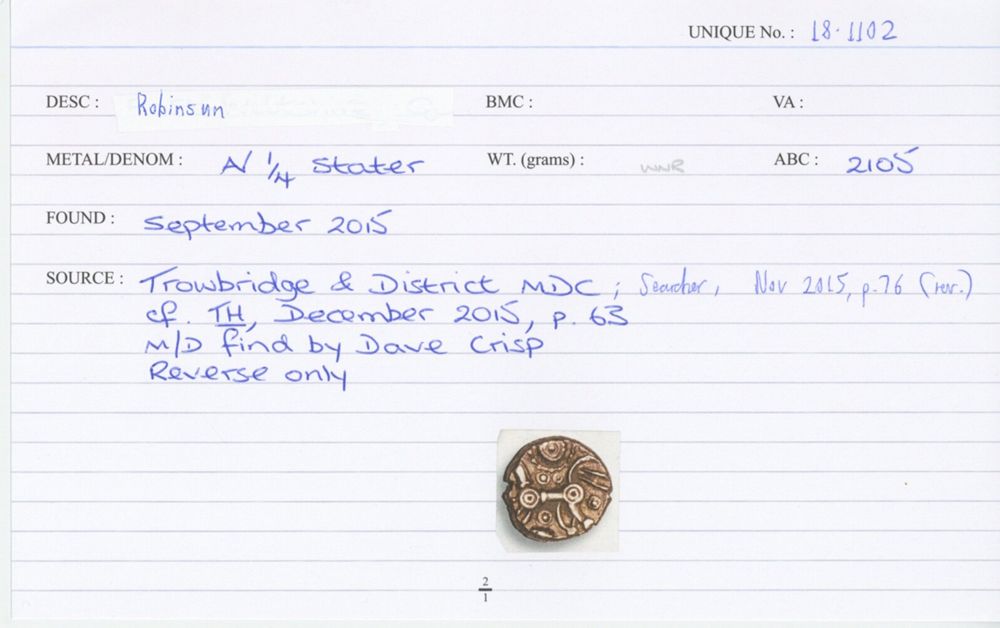 UNIQUE No. : 18.1102
DESC : Robinsun BMC : VA :
METAL/DENOM : A/ 1/4 stater WT. (grams) : WNR ABC : 2105
FOUND : September 2015
SOURCE : Trowbridge & District MDC ; Searcher, Nov 2015, p.76 (rev.)
cf. TH, December 2015, p. 63
M/D find by Dave Crisp
Reverse only
2
1